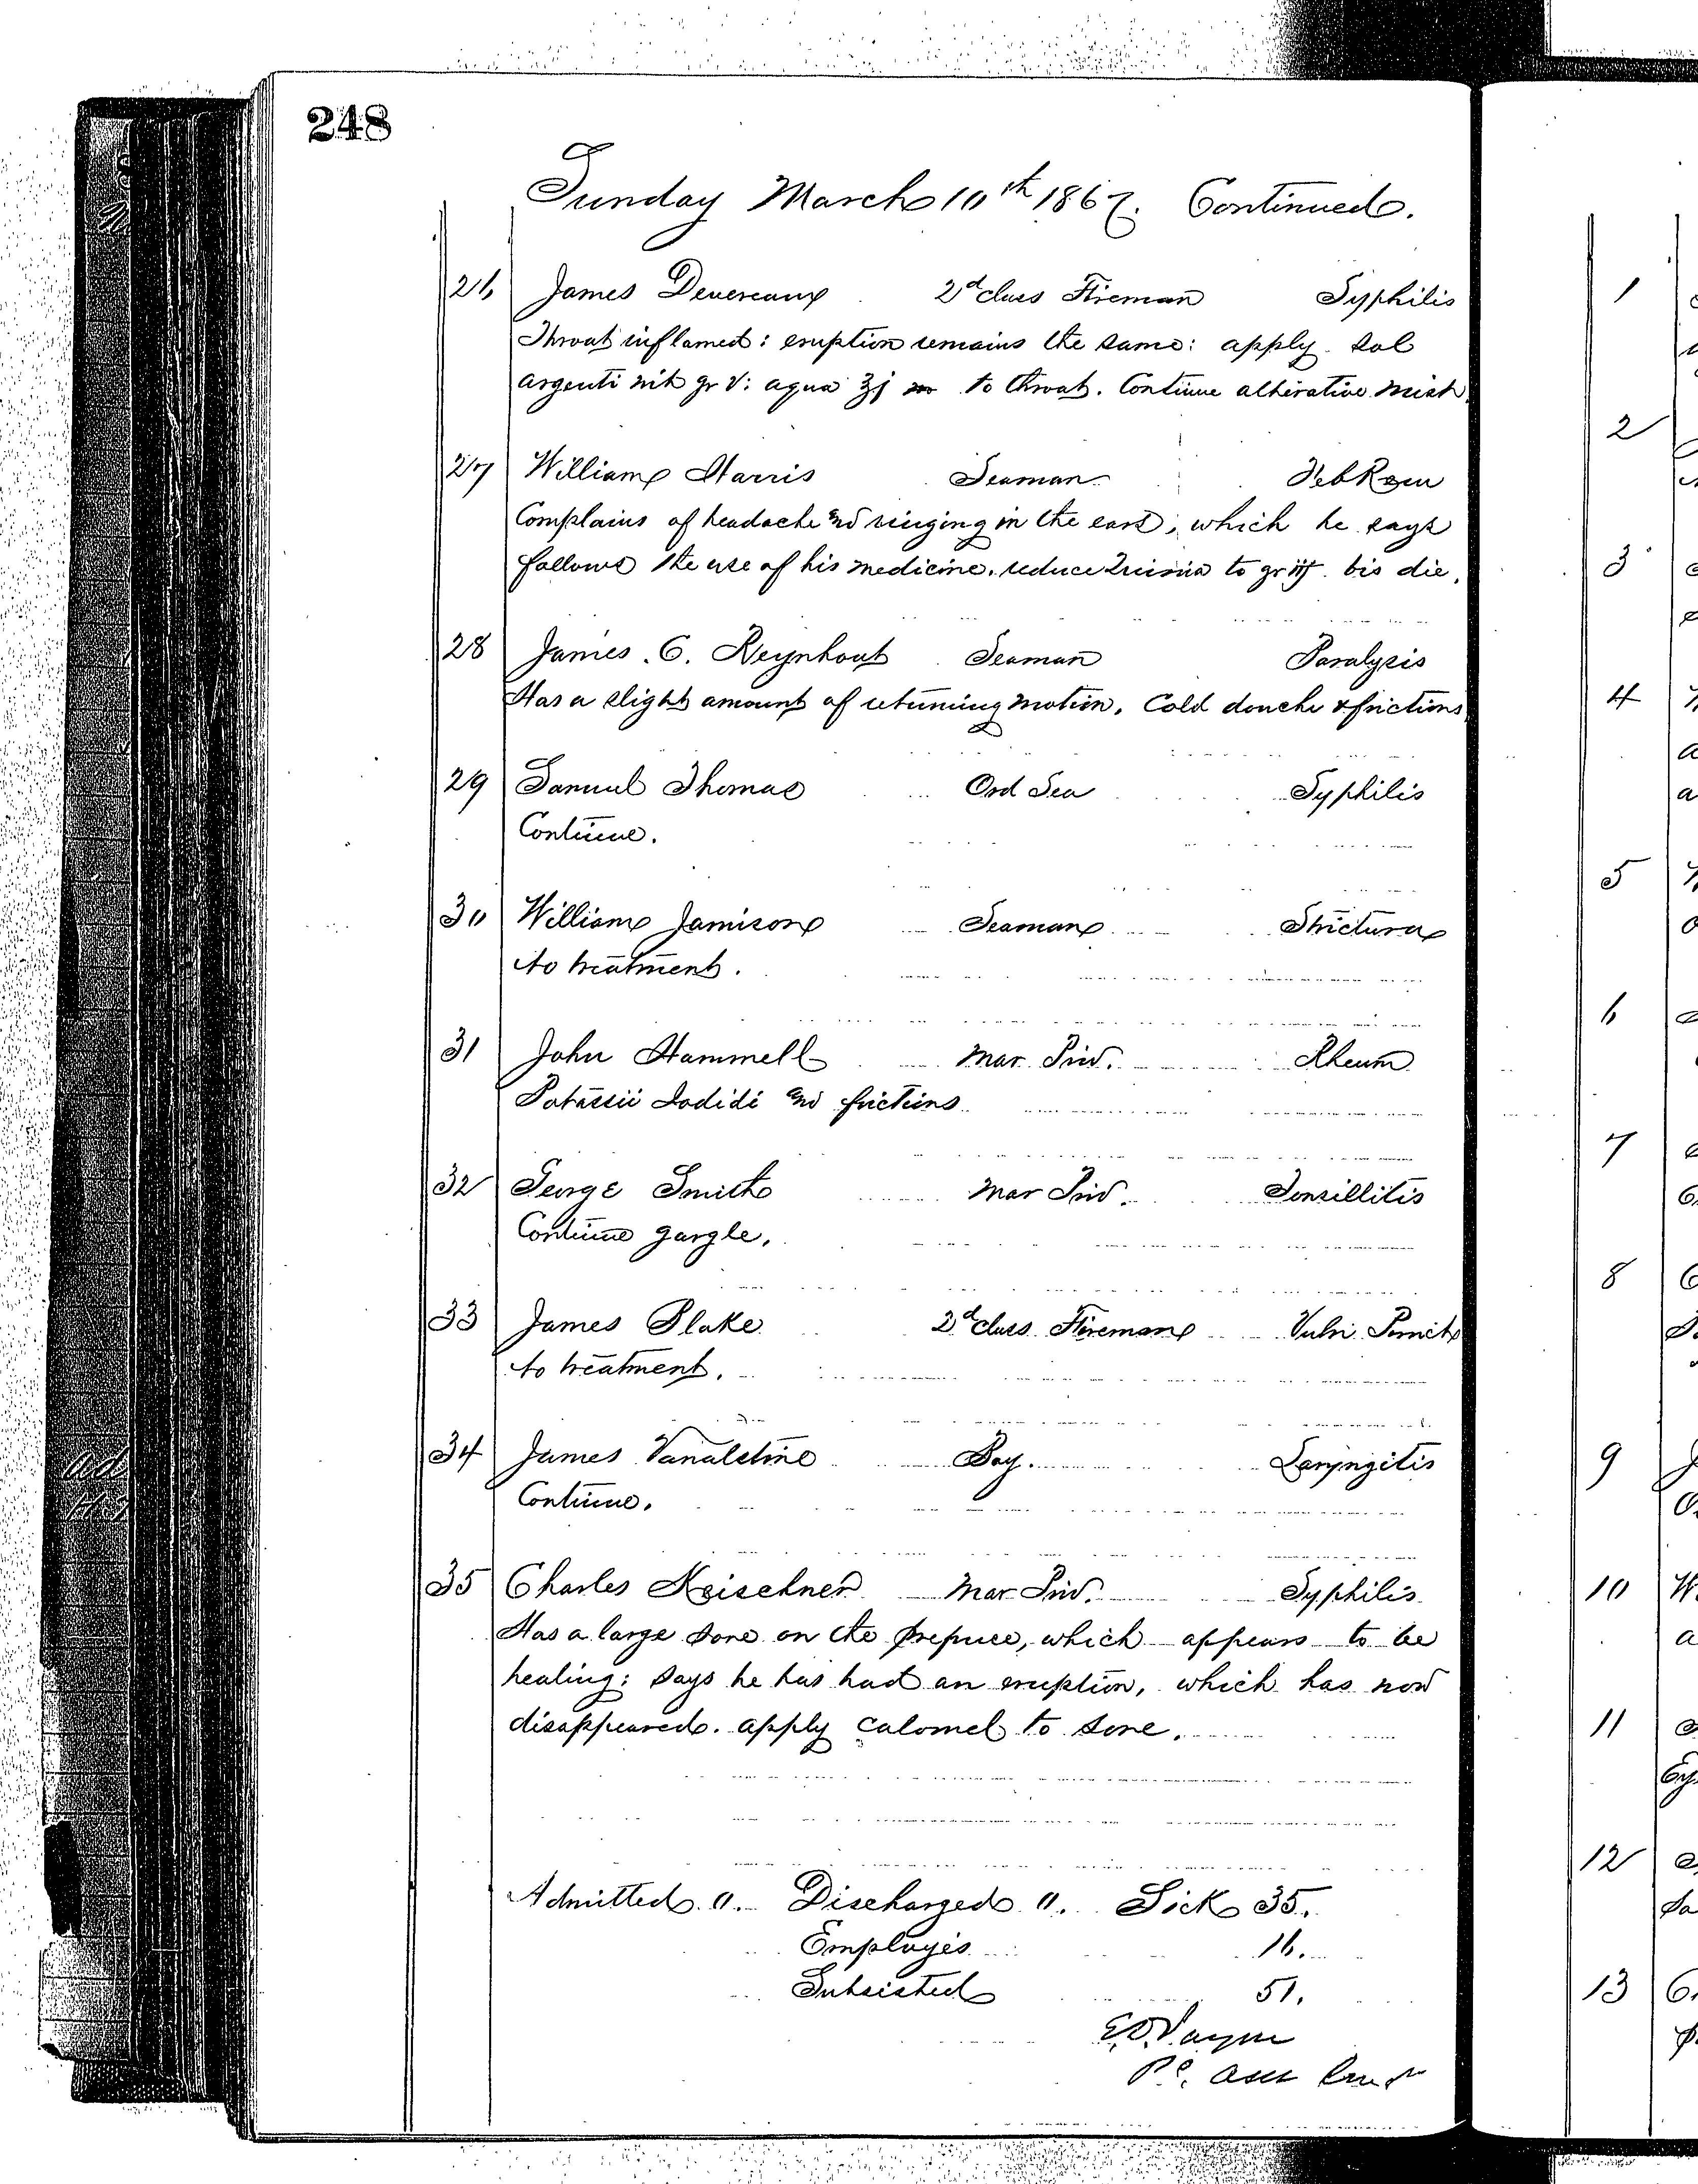 248
Sunday March 10th 1867. Continued.
26 James Devereaux 2d class Fireman Syphilis
Throat inflamed: eruption remains the same: apply sol
argenti nit gr V: aqua ʒj to throat. Continue altherative mist.
27 William Harris Seaman Feb Rem
Complains of headache and ringing in the ears, which he says
follows the use of his medicine. reduce Quinia to gr iij bis die.
28 James C. Reynhout Seaman Paralysis
Has a slight amount of returning motion. Cold douche & frictions
29 Samuel Thomas Ord Sea Syphilis
Continue.
30 William Jamison Seaman Strictura
No treatment.
31 John Hammell Mar Priv. Rheum
Potassii Iodidi and frictions
32 George Smith Mar Priv. Tonsillitis
Continue gargle.
33 James Blake 2d class Fireman Vuln
No treatment.
34 James Vanalstine Boy. Laryngitis
Continue.
35 Charles Keischner Mar Priv. Syphilis
Has a large sore on the prepuce, which appears to be
healing: says he has had an eruption, which has now
disappeared. apply calomel to sore.
Admitted ". Discharged ". Sick 35.
Employés 16.
Subsisted 51.
Pd. Asst Surg
1
2
3
4
5
6
7
8
9
10
11
12
13